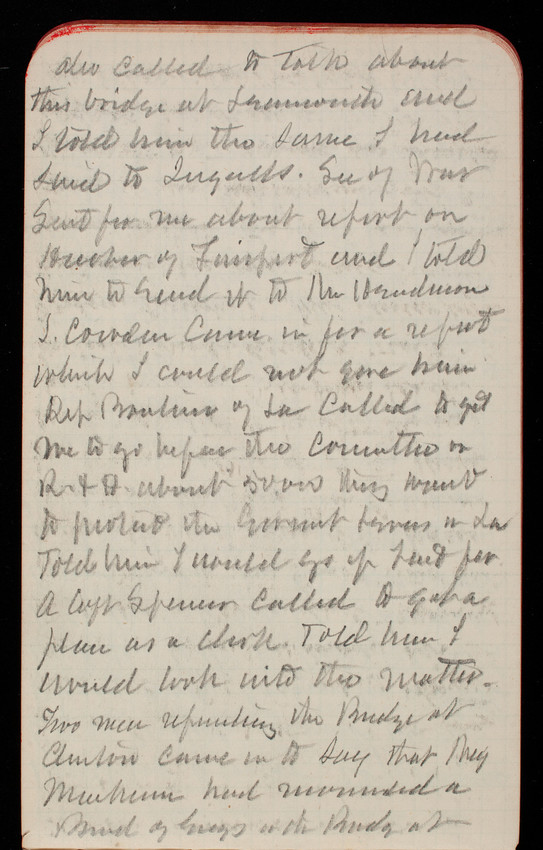 also called to talk about
this bridge at Leavenworth and
I told him the same I had
said to Ingalls. Sec of War
Sent for me about report on
Harbor of Fairport and I told
him to send it to Mr Henderson
J. Cowden Came in for a report
which I could not give him
Rep of La Called to get
me to go before the Committee on
R & H about they want
to protect the Govmt levees in La
Told him I would go if sent for
A Capt Spencer Called to get a
place as a clerk. Told him I
would look into the matter.
Two men the Bridge at
Clinton came in to say that they
had a
Bridge at